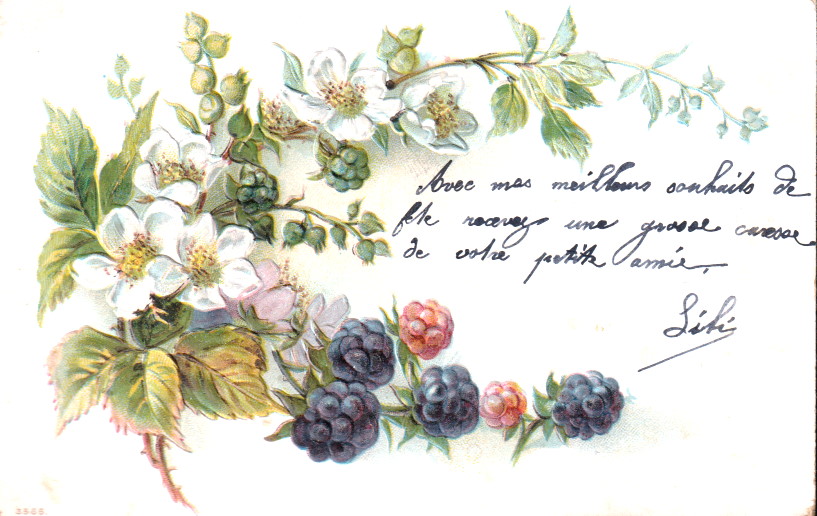 Avec mes meilleurs souhaits de
fête recevez une grosse caresse
de votre petite amie.
Lili